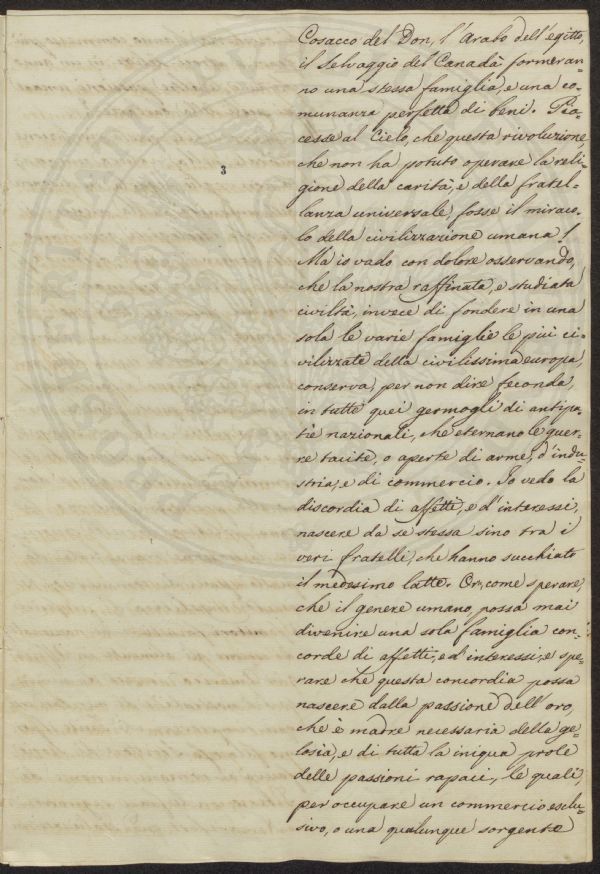 3
Cosacco del Don, l'Arabo dell'egitto,
il Selvaggio del Canadà formeran=
no una stessa famiglia, e una co=
munanza perfetta di beni. Pia=
cesse al Cielo, che questa rivoluzione,
che non ha potuto operare la reli=
gione della carità, e della fratel=
lanza universale, fosse il miraco=
lo della civilizzazione umana!
Ma io vado con dolore osservando,
che la nostra raffinata, e studiata
civiltà, invece di fondere in una
sola le varie famiglie le più ci=
vilizzate della civilissima europa,
conserva, per non dire feconda,
in tutte quei germogli di antipa=
tie nazionali, che eternano le guer=
re tacite, o aperte di arme, d'indu=
stria, e di commercio. Io vedo la
discordia di affetti, e d'interessi,
nascere da se stessa sino tra i
veri fratelli, che hanno succhiato
il medesimo latte. Or, come sperare,
che il genere umano, possa mai
divenire una sola famiglia con=
corde di affetti, e d'interessi; e spe=
rare che questa concordia possa
nascere dalla passione dell'oro,
che è madre necessaria della ge=
losia, e di tutta la iniqua prole
delle passioni rapaci, le quali,
per occupare un commercio esclu=
sivo, o una qualunque sorgente